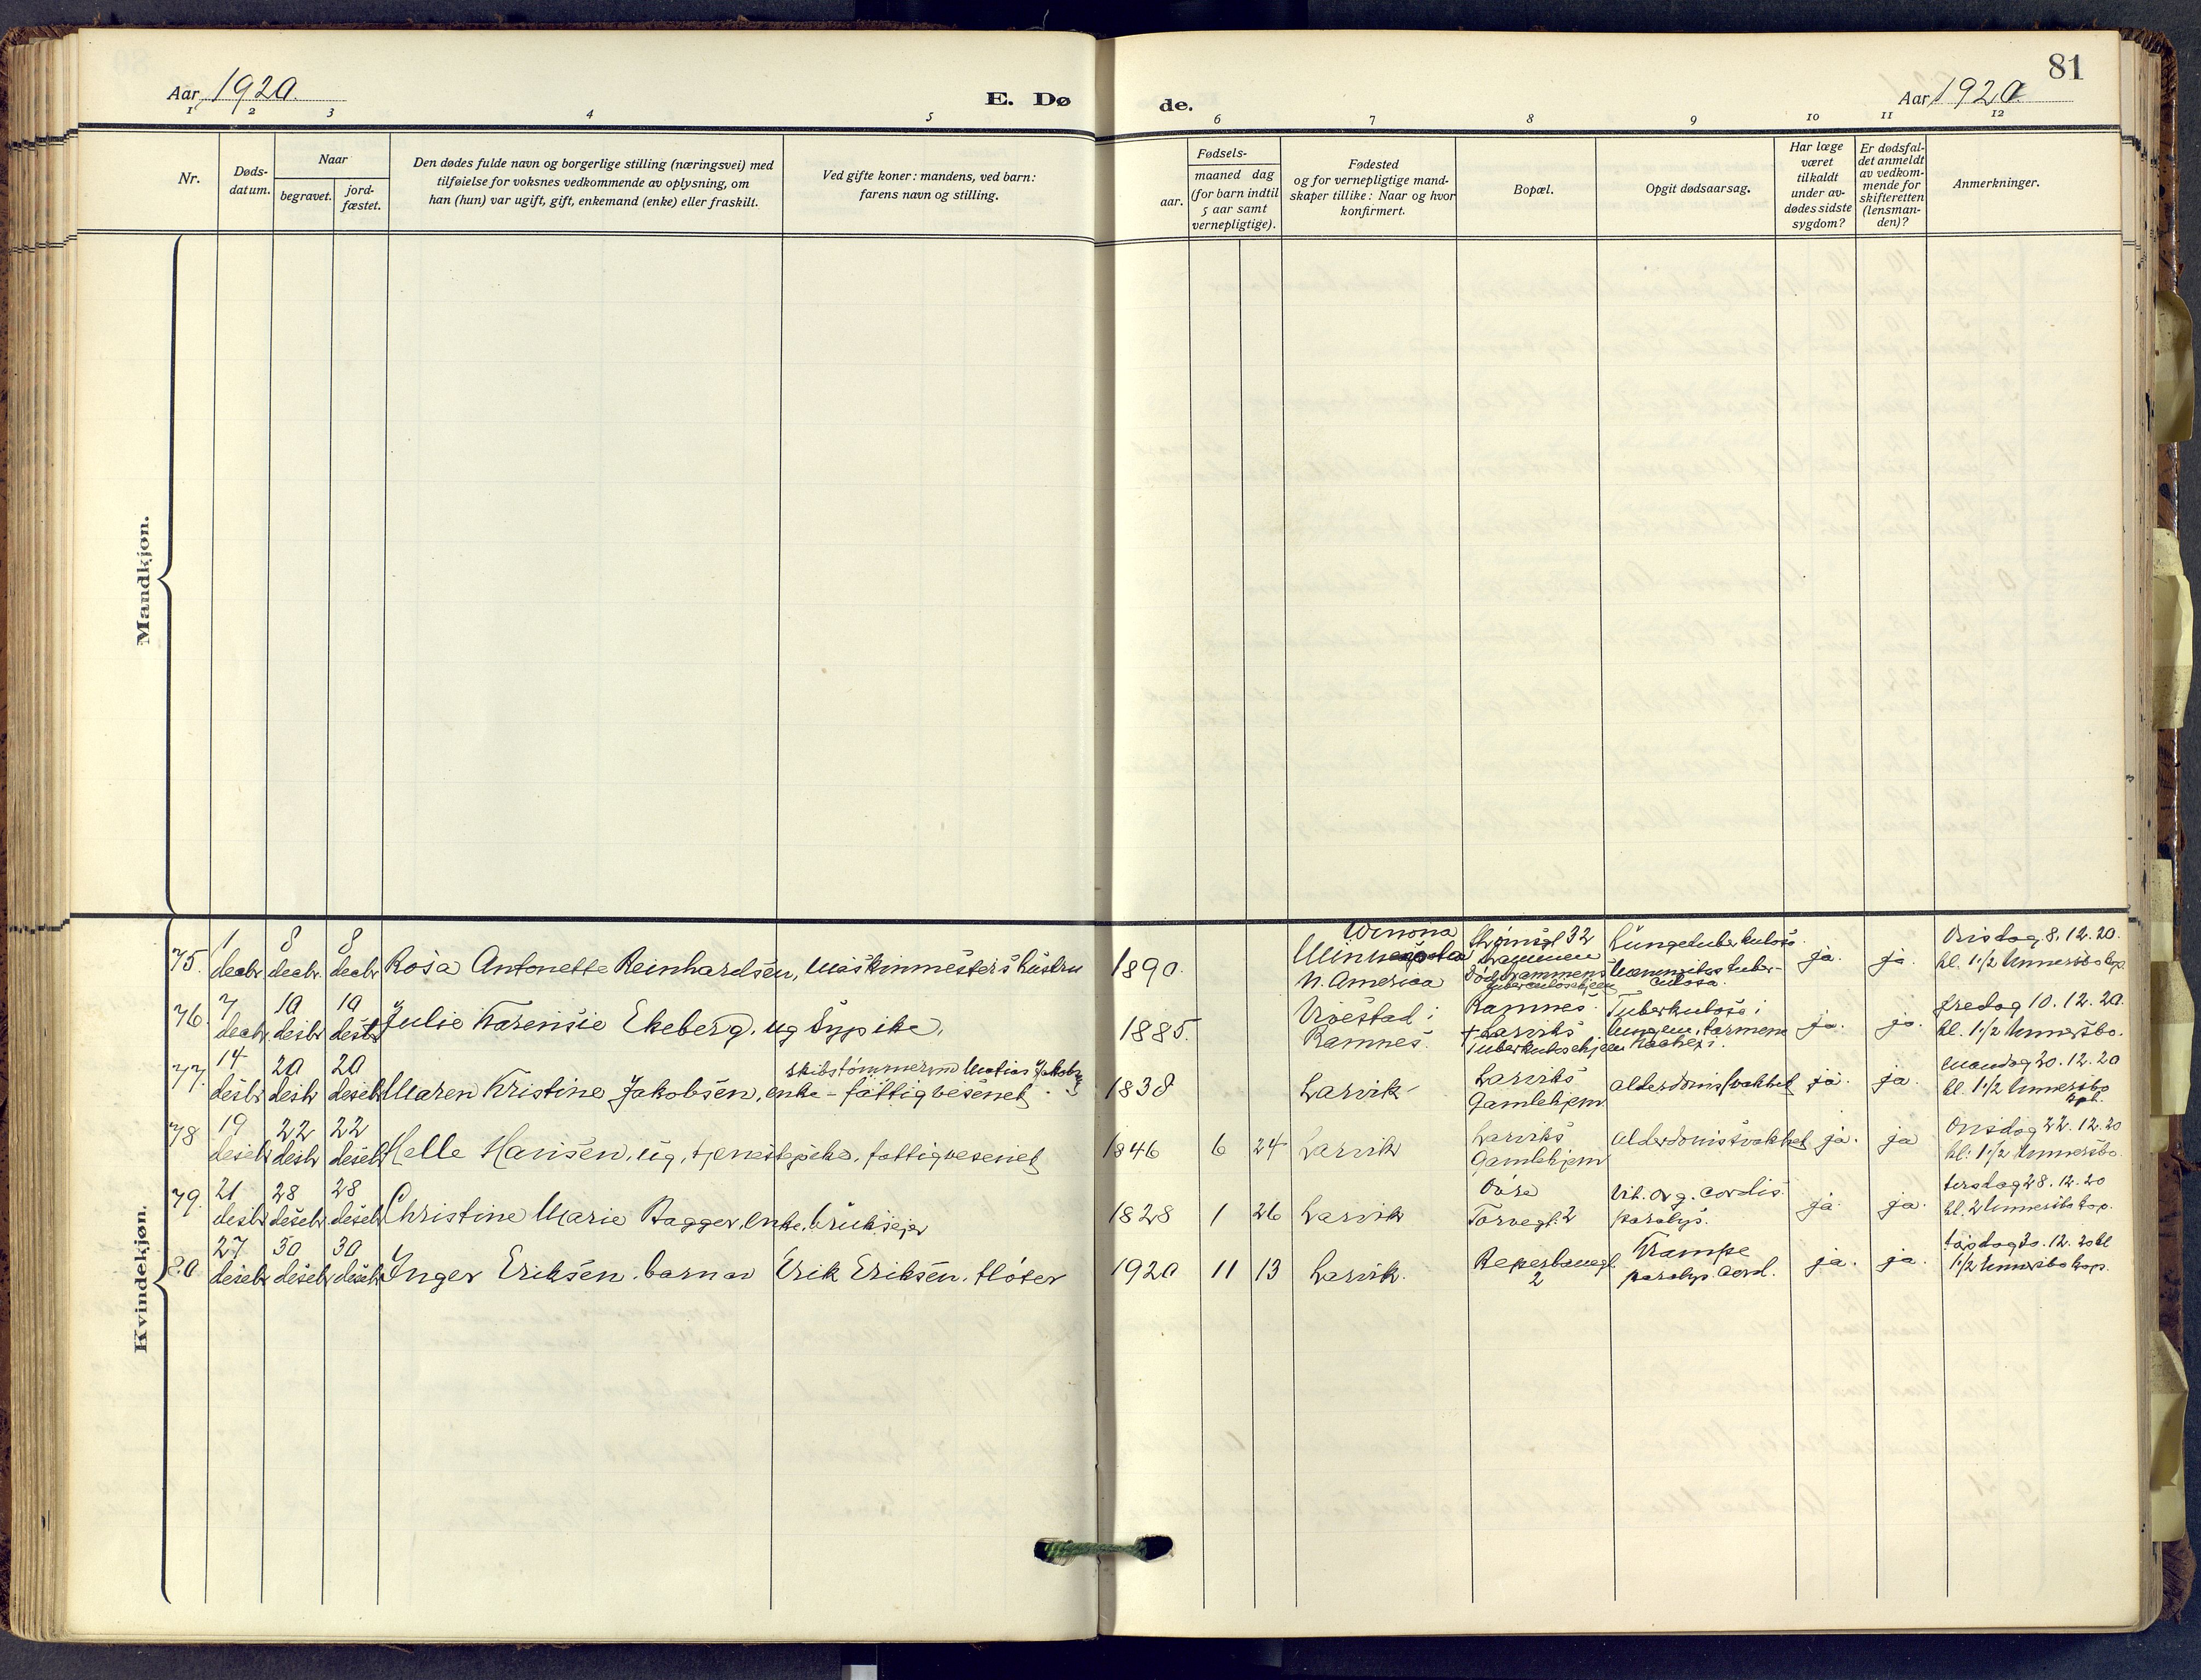 81
Aar 1920.
E. Dø
de.
Aar 1920
1 2 3 4 5
6 7 8 9 10 11 12
Nr.
Døds-
datum.
Naar
begravet.
jord-
fæstet.
Den dødes fulde navn og borgerlige stilling (næringsvei) med
tilføielse for voksnes vedkommende av oplysning, om
han (hun) var ugift, gift, enkemand (enke) eller fraskilt.
Ved gifte koner: mandens, ved barn:
farens navn og stilling.
Fødsels-
aar.
maaned dag
(for barn indtil
5 aar samt
vernepligtige).
Fødested
og for vernepligtige mand-
skaper tillike: Naar og hvor
konfirmert.
Bopæl.
Opgit dødsaarsag.
Har læge
været
tilkaldt
under av-
dødes sidste
sygdom?
Er dødsfal-
det anmeldt
av vedkom-
mende for
skifteretten
(lensman-
den)?
Anmerkninger.
Mandkjøn.
Kvindekjøn.
75.
1
decbr
8
decbr.
8
decbr
Rosa Antonette Reinhardsen, maskinmesters hustru
1890.
Winona
N. America
32
Drammen
Lungetuberkulose
ja.
ja.
Onsdag 8. 12. 20.
kl. 1 1/2
76.
7
decbr.
10
10
Julie Karensie Ekeberg, ug Sypike.
1885.
i
Ramnes.
Ramnes.
+ Larviks
Tuberkulosehjem
Tuberkulose i
ja.
ja.
Fredag 10. 12. 20.
kl. 1 1/2
77.
14
desbr
20
desbr
20
desebr
Maren Kristine Jakobsen, enke - fattigvesenet
skibstømmerm Matias Jakobsen
1838
Larvik
Larviks
Gamlehjem
alderdomssvakhet
ja.
ja.
Mandag 20. 12. 20
kl. 1 1/2
78
19
desebr
22
desbr
22
desebr
Helle Hansen, ug, tjenestepike, fattigvesenet
1846
6
24
Larvik
Larviks
Gamlehjem
alderdomssvakhet
ja.
ja
Onsdag 22. 12. 20
kl. 1 1/2
79.
21
desbr
28
desebr
28
desebr
Christine Marie Bagger, enke, brukseier
1828
1
26
Larvik
Øvre
Torvegt. 2
Vit. org. cordis.
paralys.
ja.
ja.
Tirsdag 28. 12. 20
kl. 2
80.
27
desebr
30
desebr
30
desebr
Inger Eriksen. barn av
Erik Eriksen. fløter
1920
11
13
Larvik.
Reperbanegt
2
Krampe
paralys. cord.
ja.
ja.
30. 12. 20 kl
1 1/2